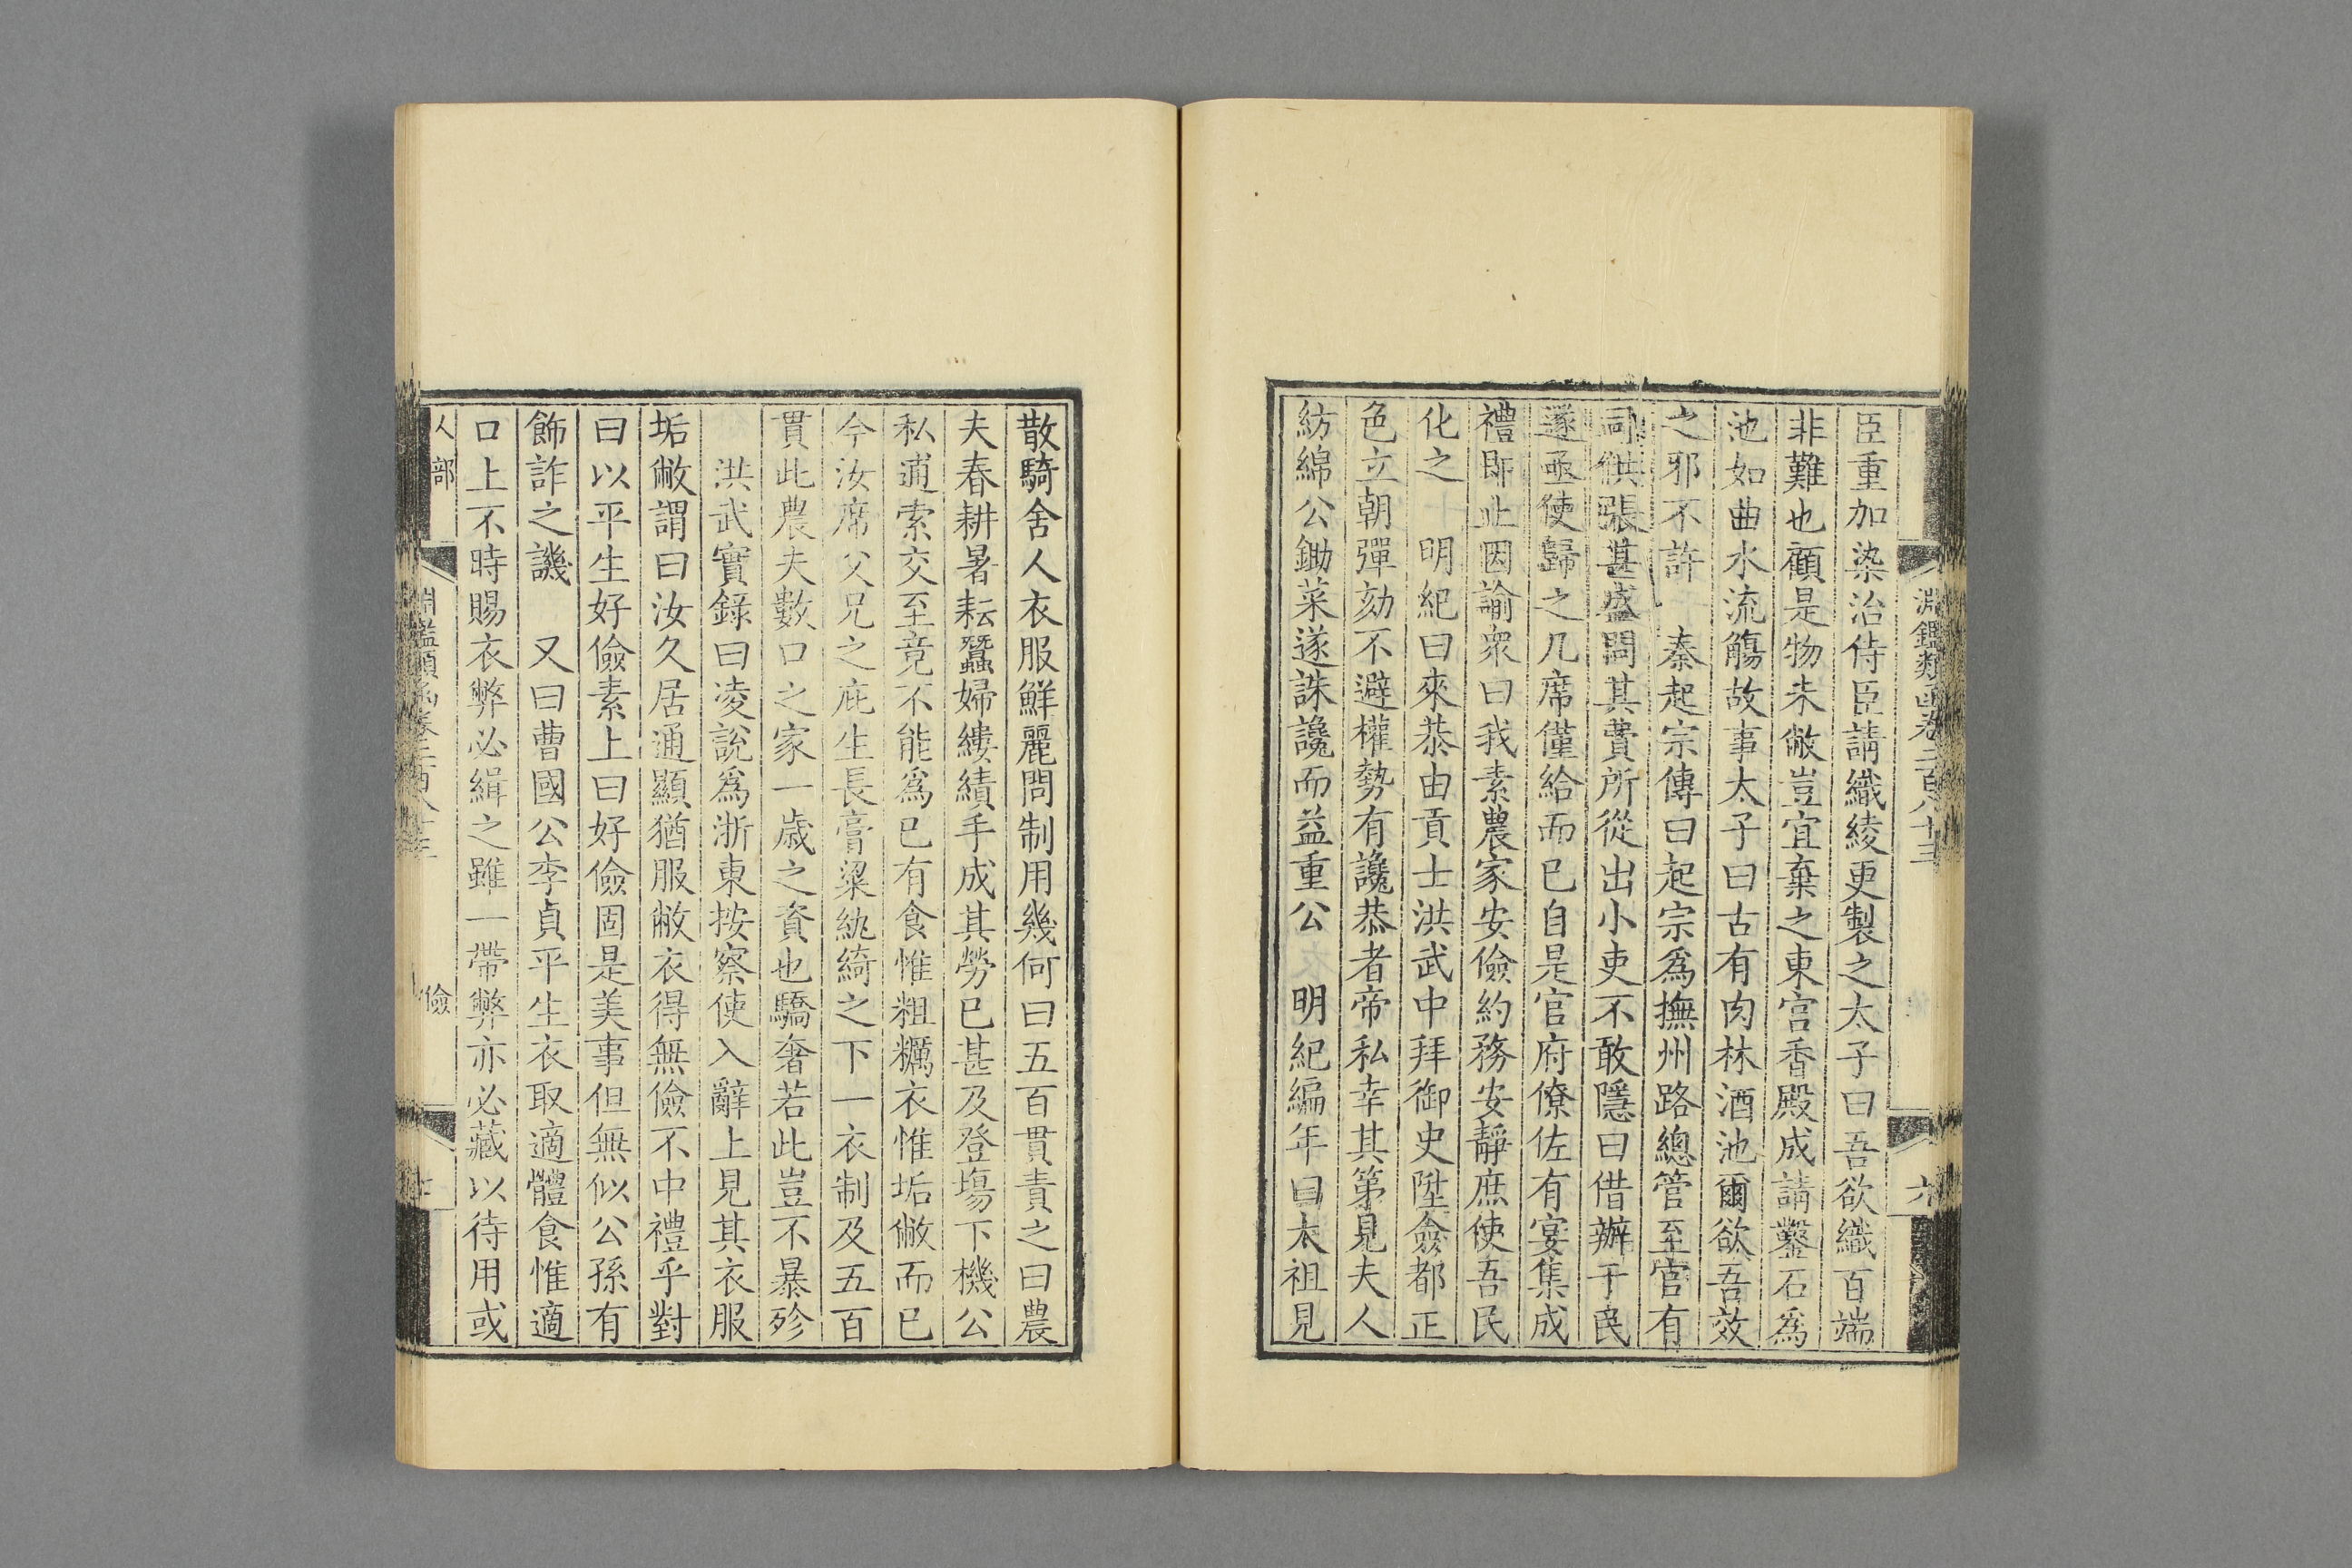 淵鑑類函卷二百八十三
六
臣重加染治侍臣請織綾更製之太子曰吾欲織百端
非難也顧是物未敝豈宜棄之東宫香殿成請鑿石爲
池如曲水流觴故事太子曰古有肉林酒池爾欲吾效
之邪不許　秦起宗傳曰起宗爲撫州路總管至官有
司供張甚盛問其費所從出小吏不敢隱曰借辦于民
遂亟使歸之几席僅給而已自是官府僚佐有宴集成
禮即止因諭衆曰我素農家安儉約務安靜庶使吾民
化之　明紀曰來恭由貢士洪武中拜御史陞僉都正
色立朝彈劾不避權勢有讒恭者帝私幸其第見夫人
紡綿公鋤菜遂誅讒而益重公　明紀編年曰太祖見
散騎舍人衣服鮮麗問制用幾何曰五百貫責之曰農
夫春耕暑耘蠶婦縷績手成其勞已甚及登塲下機公
私逋索交至竟不能爲已有食惟粗糲衣惟垢敝而已
今汝席父兄之庇生長膏粱紈綺之下一衣制及五百
貫此農夫數口之家一歲之資也驕奢若此豈不暴殄
洪武實錄曰凌說爲浙東按察使入辭上見其衣服
垢敝謂曰汝久居通顯猶服敝衣得無儉不中禮乎對
曰以平生好儉素上曰好儉固是美事但無似公孫有
飾詐之譏　又曰曹國公李貞平生衣取適體食惟適
口上不時賜衣弊必緝之雖一帶弊亦必藏以待用或
人部
淵鑑類函卷二百八十三
儉
七